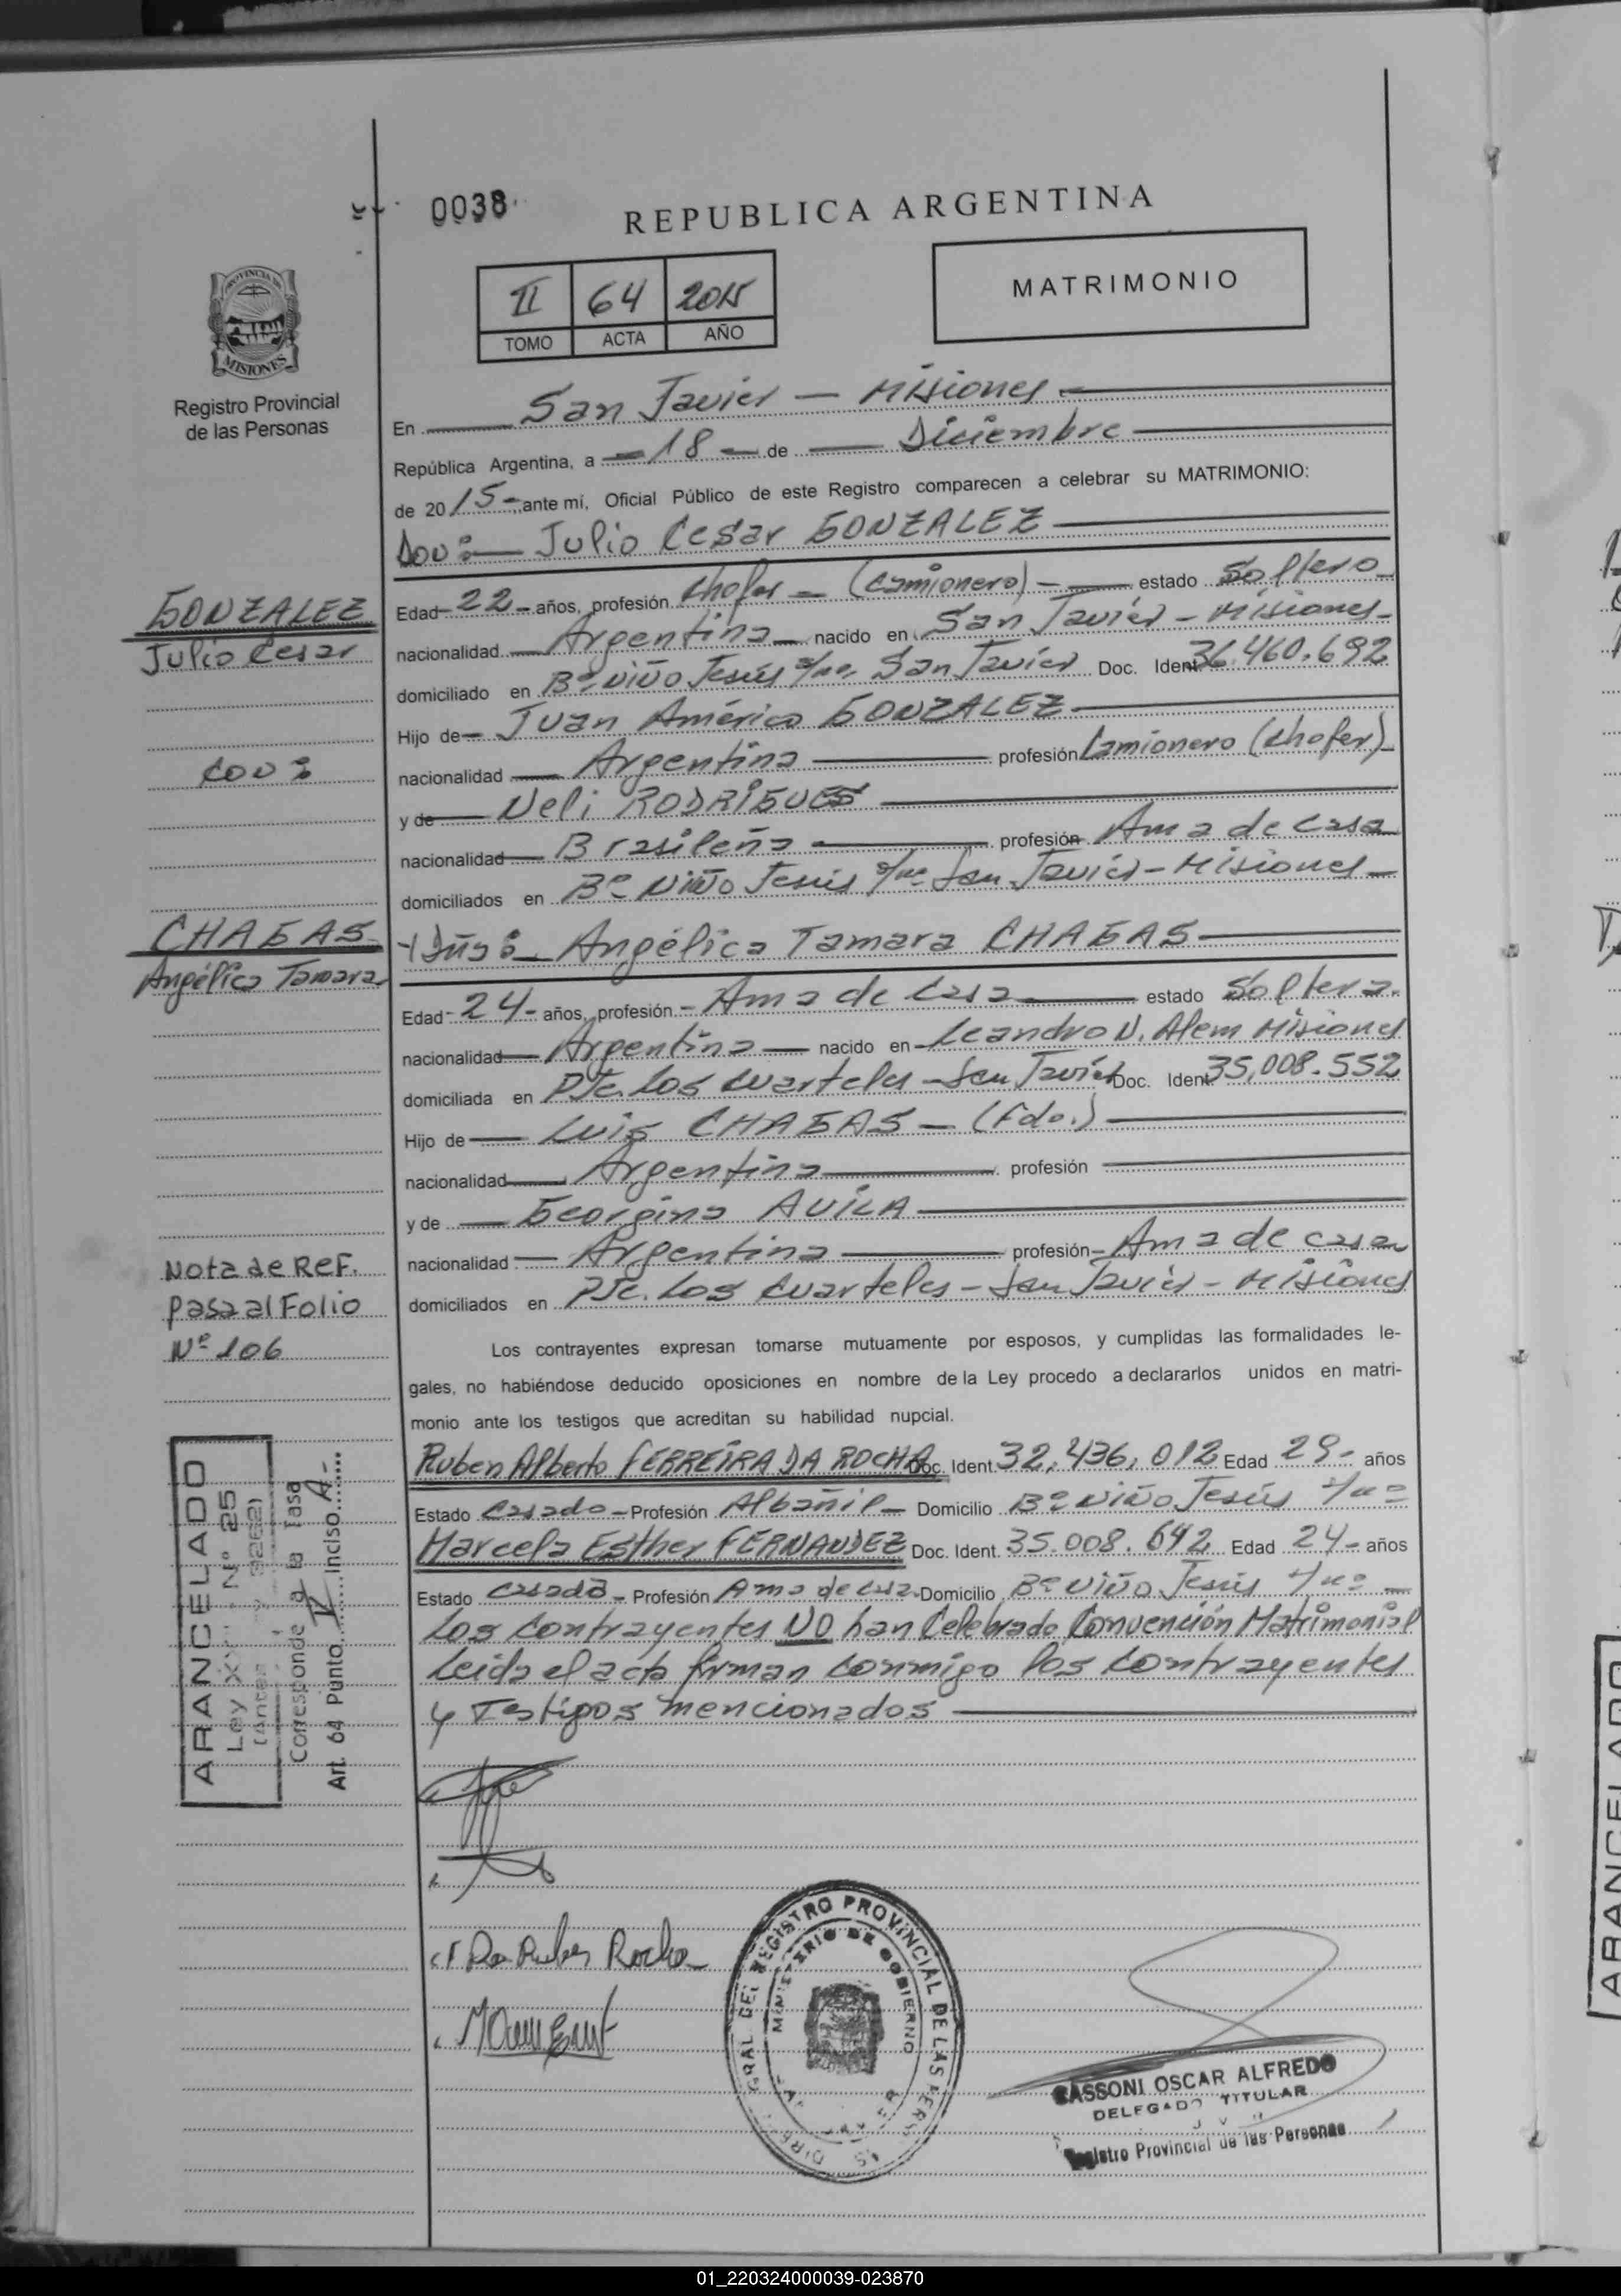 0038
REPUBLICA ARGENTINA
II 64 2015
TOMO ACTA AÑO
MATRIMONIO
PROVINCIA DE
MISIONES
Registro Provincial
de las Personas
En San Javier — Misiones
República Argentina, a 18 de Diciembre
de 2015 ante mí, Oficial Público de este Registro comparecen a celebrar su MATRIMONIO:
Don: Julio Cesar GONZALEZ
GONZALEZ
Julio Cesar
Con:
CHAGAS
Angélica Tamara
Nota de Ref.
Pasa al Folio
Nº 106
Edad 22 años, profesión Chofer - (Camionero) estado Soltero
nacionalidad Argentina nacido en San Javier - Misiones
domiciliado en Bº Niño Jesús s/nº San Javier Doc. Ident 36.460.692
Hijo de Juan Américo GONZALEZ
nacionalidad Argentina profesión Camionero (Chofer)
y de Neli RODRÍGUES
nacionalidad Brasileña profesión Ama de casa
domiciliados en Bº Niño Jesús s/nº San Javier - Misiones
y Dña: Angélica Tamara CHAGAS
Edad 24 años, profesión Ama de Casa estado Soltera.
nacionalidad Argentina nacido en Leandro N. Alem Misiones
domiciliada en Pje. Los Cuarteles - San Javier Doc. Ident 35,008.552
Hijo de Luis CHAGAS - (Fdo.)
nacionalidad Argentina profesión
y de Georgina AVILA
nacionalidad Argentina profesión Ama de casa
domiciliados en Pje. Los Cuarteles - San Javier - Misiones
Los contrayentes expresan tomarse mutuamente por esposos, y cumplidas las formalidades le-
gales, no habiéndose deducido oposiciones en nombre de la Ley procedo a declararlos unidos en matri-
monio ante los testigos que acreditan su habilidad nupcial.
Ruben Alberto FERREÍRA DA ROCHA Doc. Ident. 32,436,012 Edad 29 años
Estado Casado - Profesión Albañil - Domicilio Bº Niño Jesús s/nº
Marcela Esther FERNANDEZ Doc. Ident. 35.008.692 Edad 24 años
Estado Casada - Profesión Ama de casa Domicilio Bº Niño Jesús s/nº
Los Contrayentes NO han Celebrado Convención Matrimonial
Leída el acta firman conmigo los Contrayentes
y Testigos mencionados
ARANCELADO
Ley Nº 25
Corresponde a la Tasa
Art. 64 Punto IV Inciso A
Rocha
REGISTRO PROVINCIAL DE LAS
MINISTERIO DE GOBIERNO
SASSONI OSCAR ALFREDO
DELEGADO TITULAR
Registro Provincial de las Personas
ARANCELADO
01_220324000039-023870